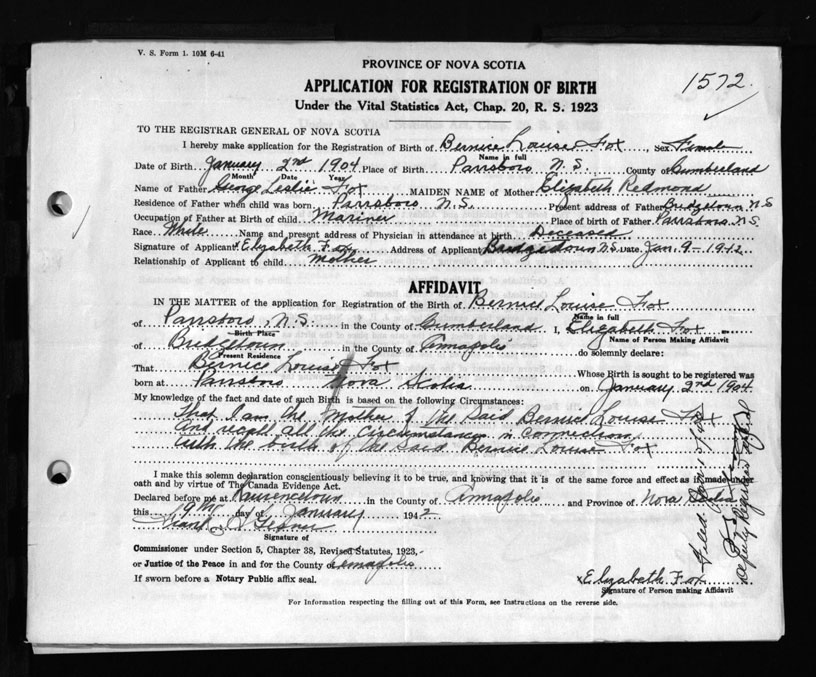 V. S. Form 1. 10M 6-41
PROVINCE OF NOVA SCOTIA
1572.
APPLICATION FOR REGISTRATION OF BIRTH
Under the Vital Statistics Act, Chap. 20, R. S. 1923
TO THE REGISTRAR GENERAL OF NOVA SCOTIA
I hereby make application for the Registration of Birth of Bernice Louise Fox, Sex Female
Name in full
Date of Birth January 2nd 1904 Place of Birth Parrsboro N.S. County of Cumberland
Month Date Year
Name of Father George Leslie Fox MAIDEN NAME of Mother Elizabeth Redmond
Residence of Father when child was born Parrsboro N.S. Present address of Father Bridgetown N S
Occupation of Father at Birth of child Mariner Place of birth of Father Parrsboro N.S.
Race White Name and present address of Physician in attendance at birth Deceased
Signature of Applicant Elizabeth Fox Address of Applicant Bridgetown N.S. Date Jan. 9 - 1942
Relationship of Applicant to child Mother
AFFIDAVIT
IN THE MATTER of the application for Registration of the Birth of Bernice Louise Fox
Name in full
of Parrsboro, N.S. in the County of Cumberland I, Elizabeth Fox
Birth Place Name of Person Making Affidavit
of Bridgetown in the County of Annapolis do solemnly declare:
Present Residence
That Bernice Louise Fox Whose Birth is sought to be registered was
born at Parrsboro Nova Scotia on January 2nd 1904
My knowledge of the fact and date of such Birth is based on the following Circumstances:
That I am the Mother of the Said Bernice Louise Fox
And recall all the circumstances in connection
with the birth of the said Bernice Louise Fox
I make this solemn declaration conscientiously believing it to be true, and knowing that it is of the same force and effect as if made under
oath and by virtue of The Canada Evidence Act.
Declared before me at Lawrencetown in the County of Annapolis and Province of Nova Scotia
this 9th day of January 1942
Frank
Signature of
Commissioner under Section 5, Chapter 38, Revised Statutes, 1923,
or Justice of the Peace in and for the County Annapolis
If sworn before a Notary Public affix seal.
Elizabeth Fox
Signature of Person making Affidavit
For Information respecting the filling out of this Form, see Instructions on the reverse side.
Filed Jan
Deputy Registrar General